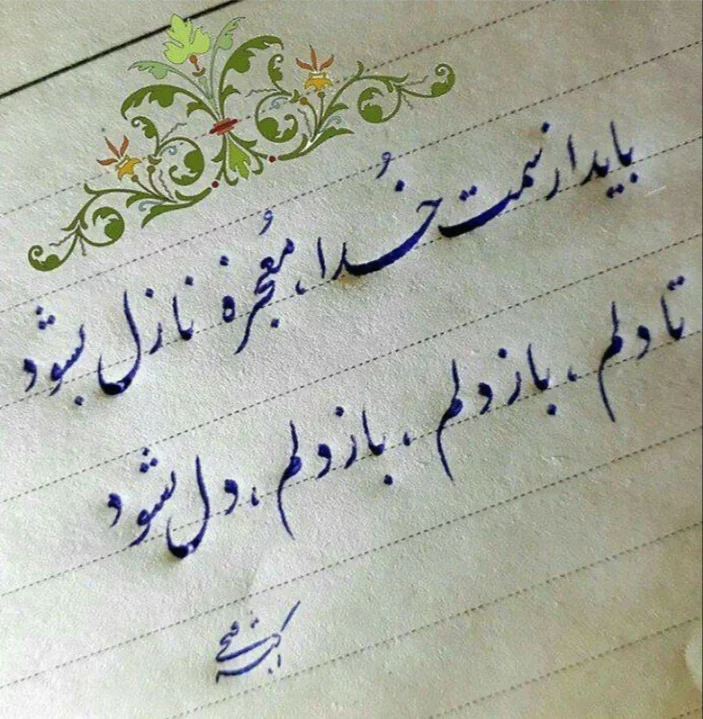 باید از سمت خُدا، مُعجزهٔ نازل بشود
تا دلم، باز دلم، باز دلم، دل بشود